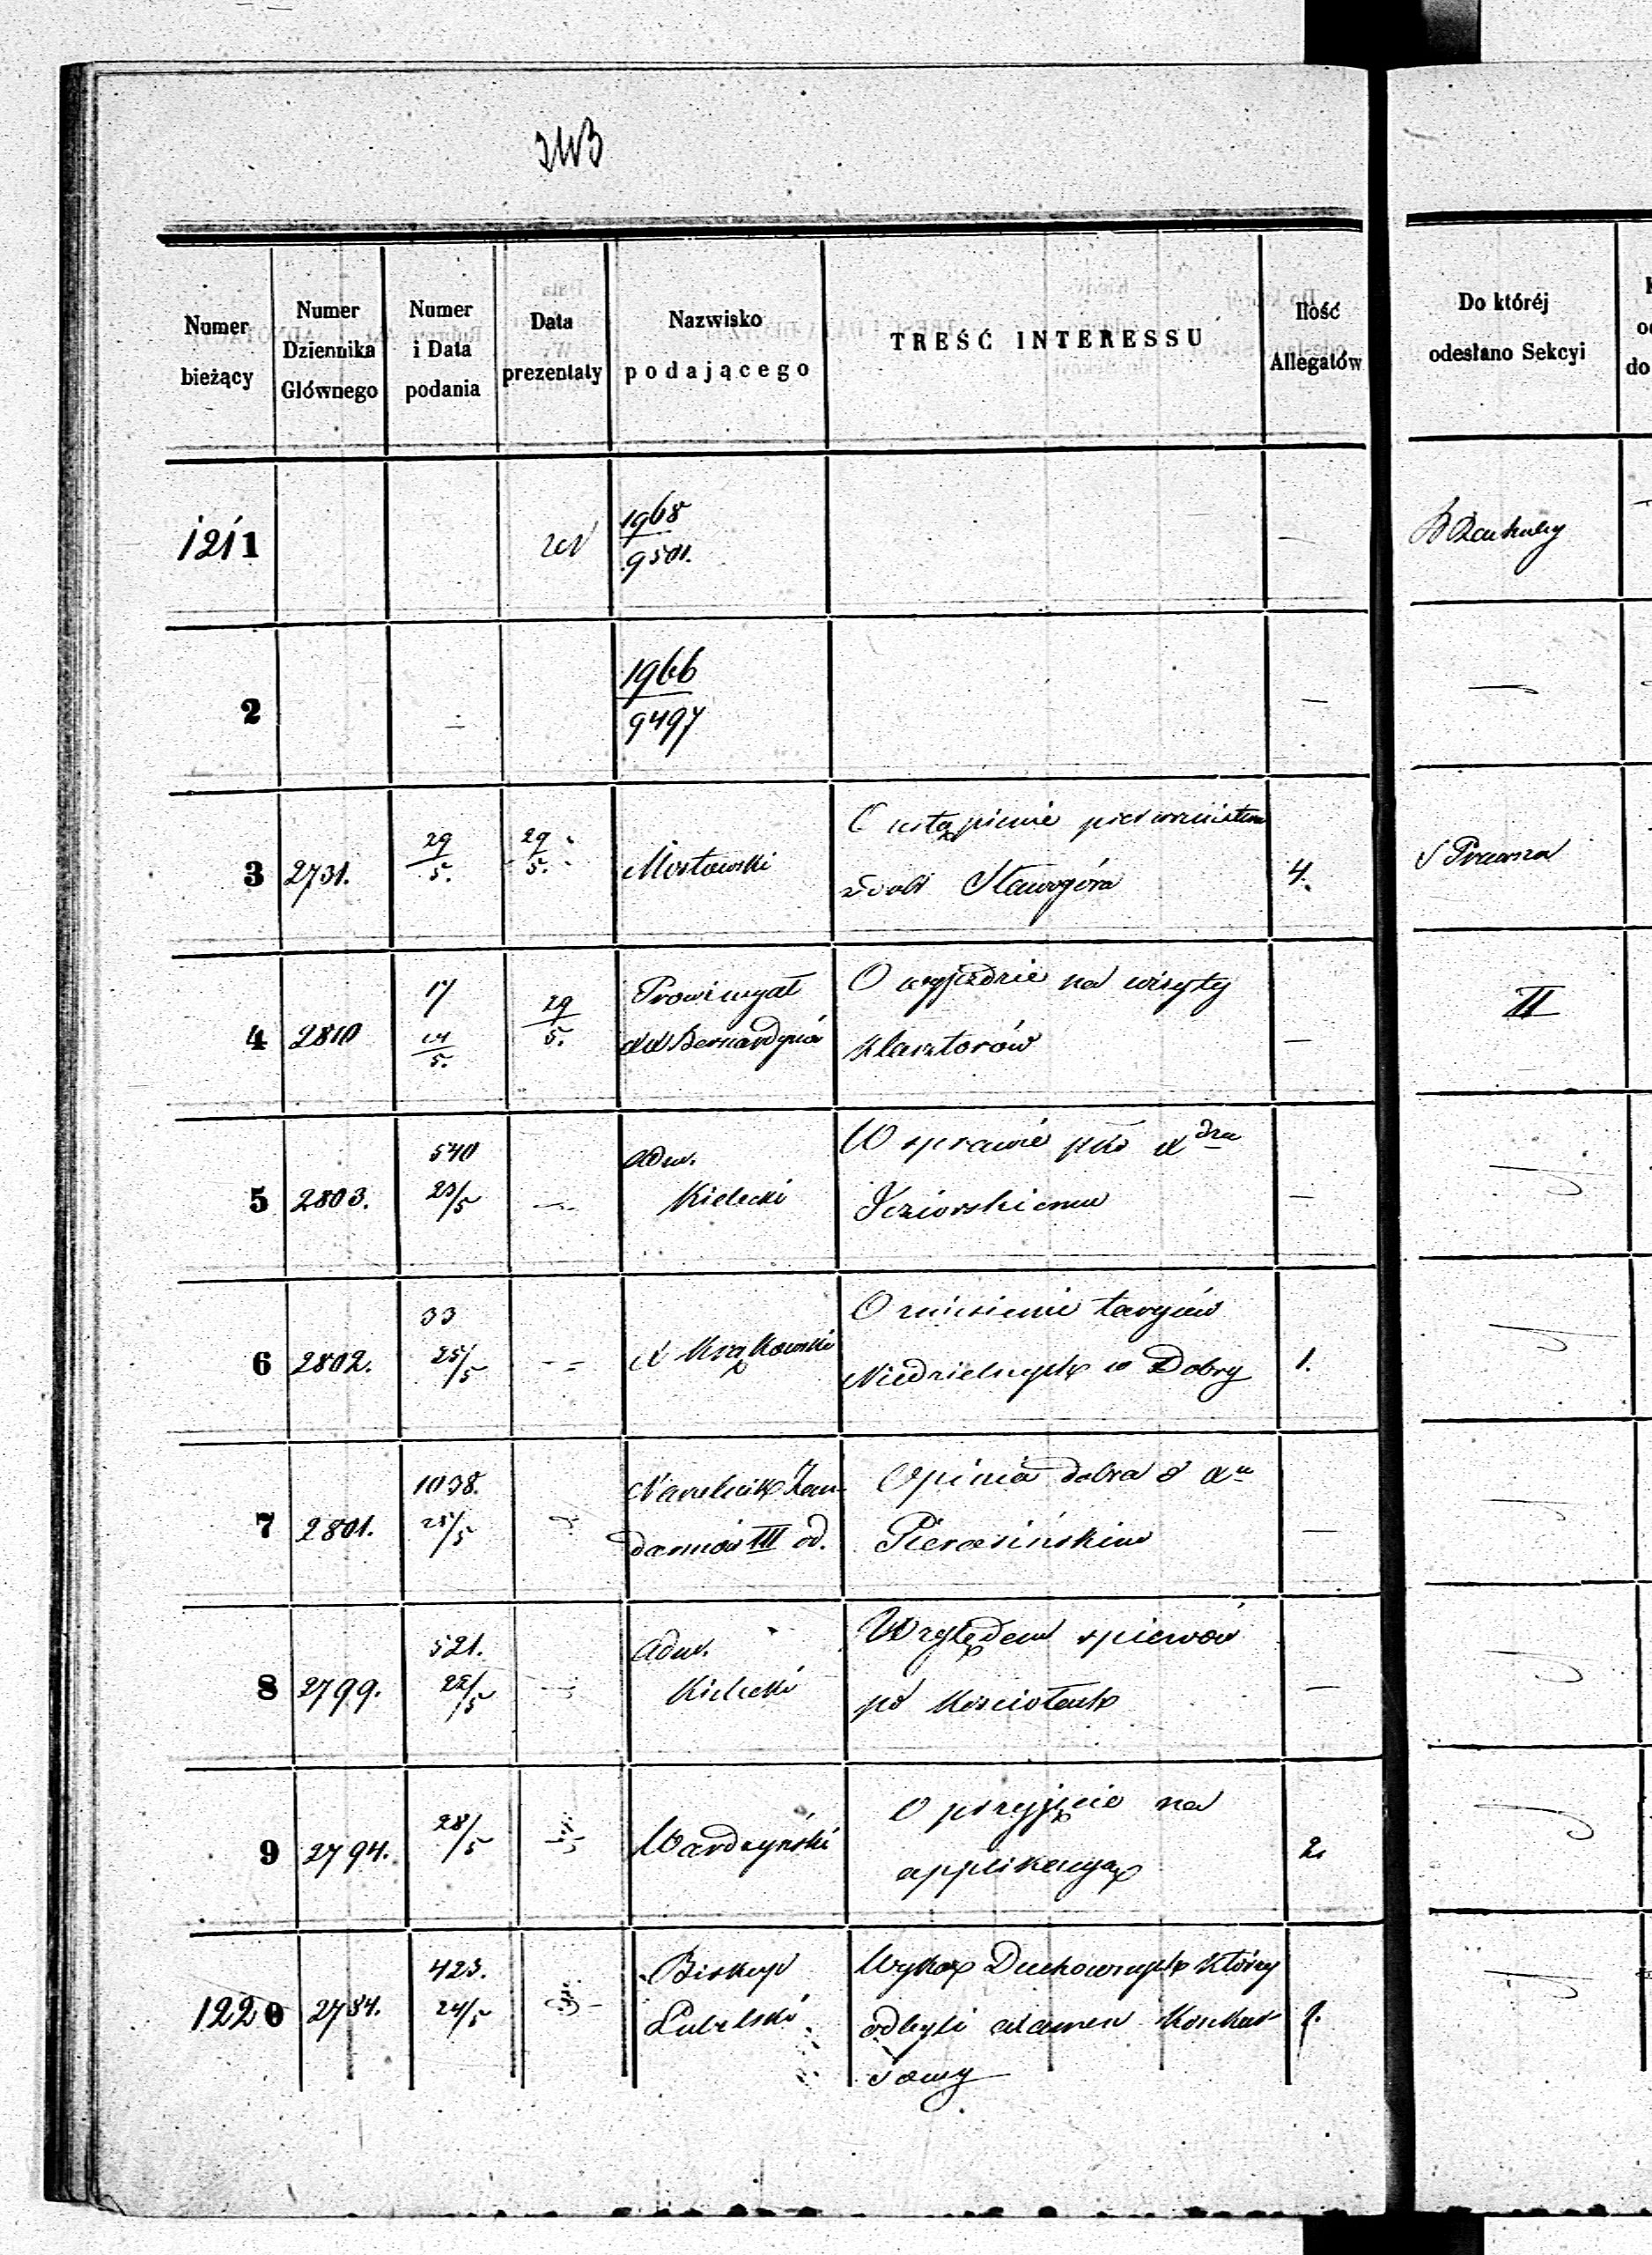 Numer bieżący
Numer Dziennika Głównego
Numer i Data podania
Data prezentaty
Nazwisko podającego
TREŚĆ INTERESSU
Ilość Allegatów
Do któréj odesłano Sekcyi
1211
1968
9501.
—
2
1966
9497
—
—
3 2731. 29/5. 29/5. Mostowski
O ustąpienie pierwszeństwa
Stawogóra
4. Prawna
4 2810 17 29/5.
Prowincyał
XX Bernardynów
O wyjeździe na wizyty
klasztorów
— II
5 2803. 540 23/5
Adm.
Kielecki
W sprawie pko X
Jeziorskiemu
—
6 2802. 33 25/5
X Krąkowski
O zniesienie targów
Niedzielnych w Dobry
1.
7 2801. 1038. 25/5
Naczelnik Żan-
darmów III od.
Opinia dobra o Xu
—
8 2799. 521. 22/5
Adm.
Kielecki
Względem spiewów
po Kosciołach
—
9 2794. 28/5
Wardzyński
O przyjęcie na
applikacyą
2.
1220 2784. 423. 24/5
Biskup
Lubelski
Wykaz Duchownych którzy
odbyli examen Konkur-
sowy